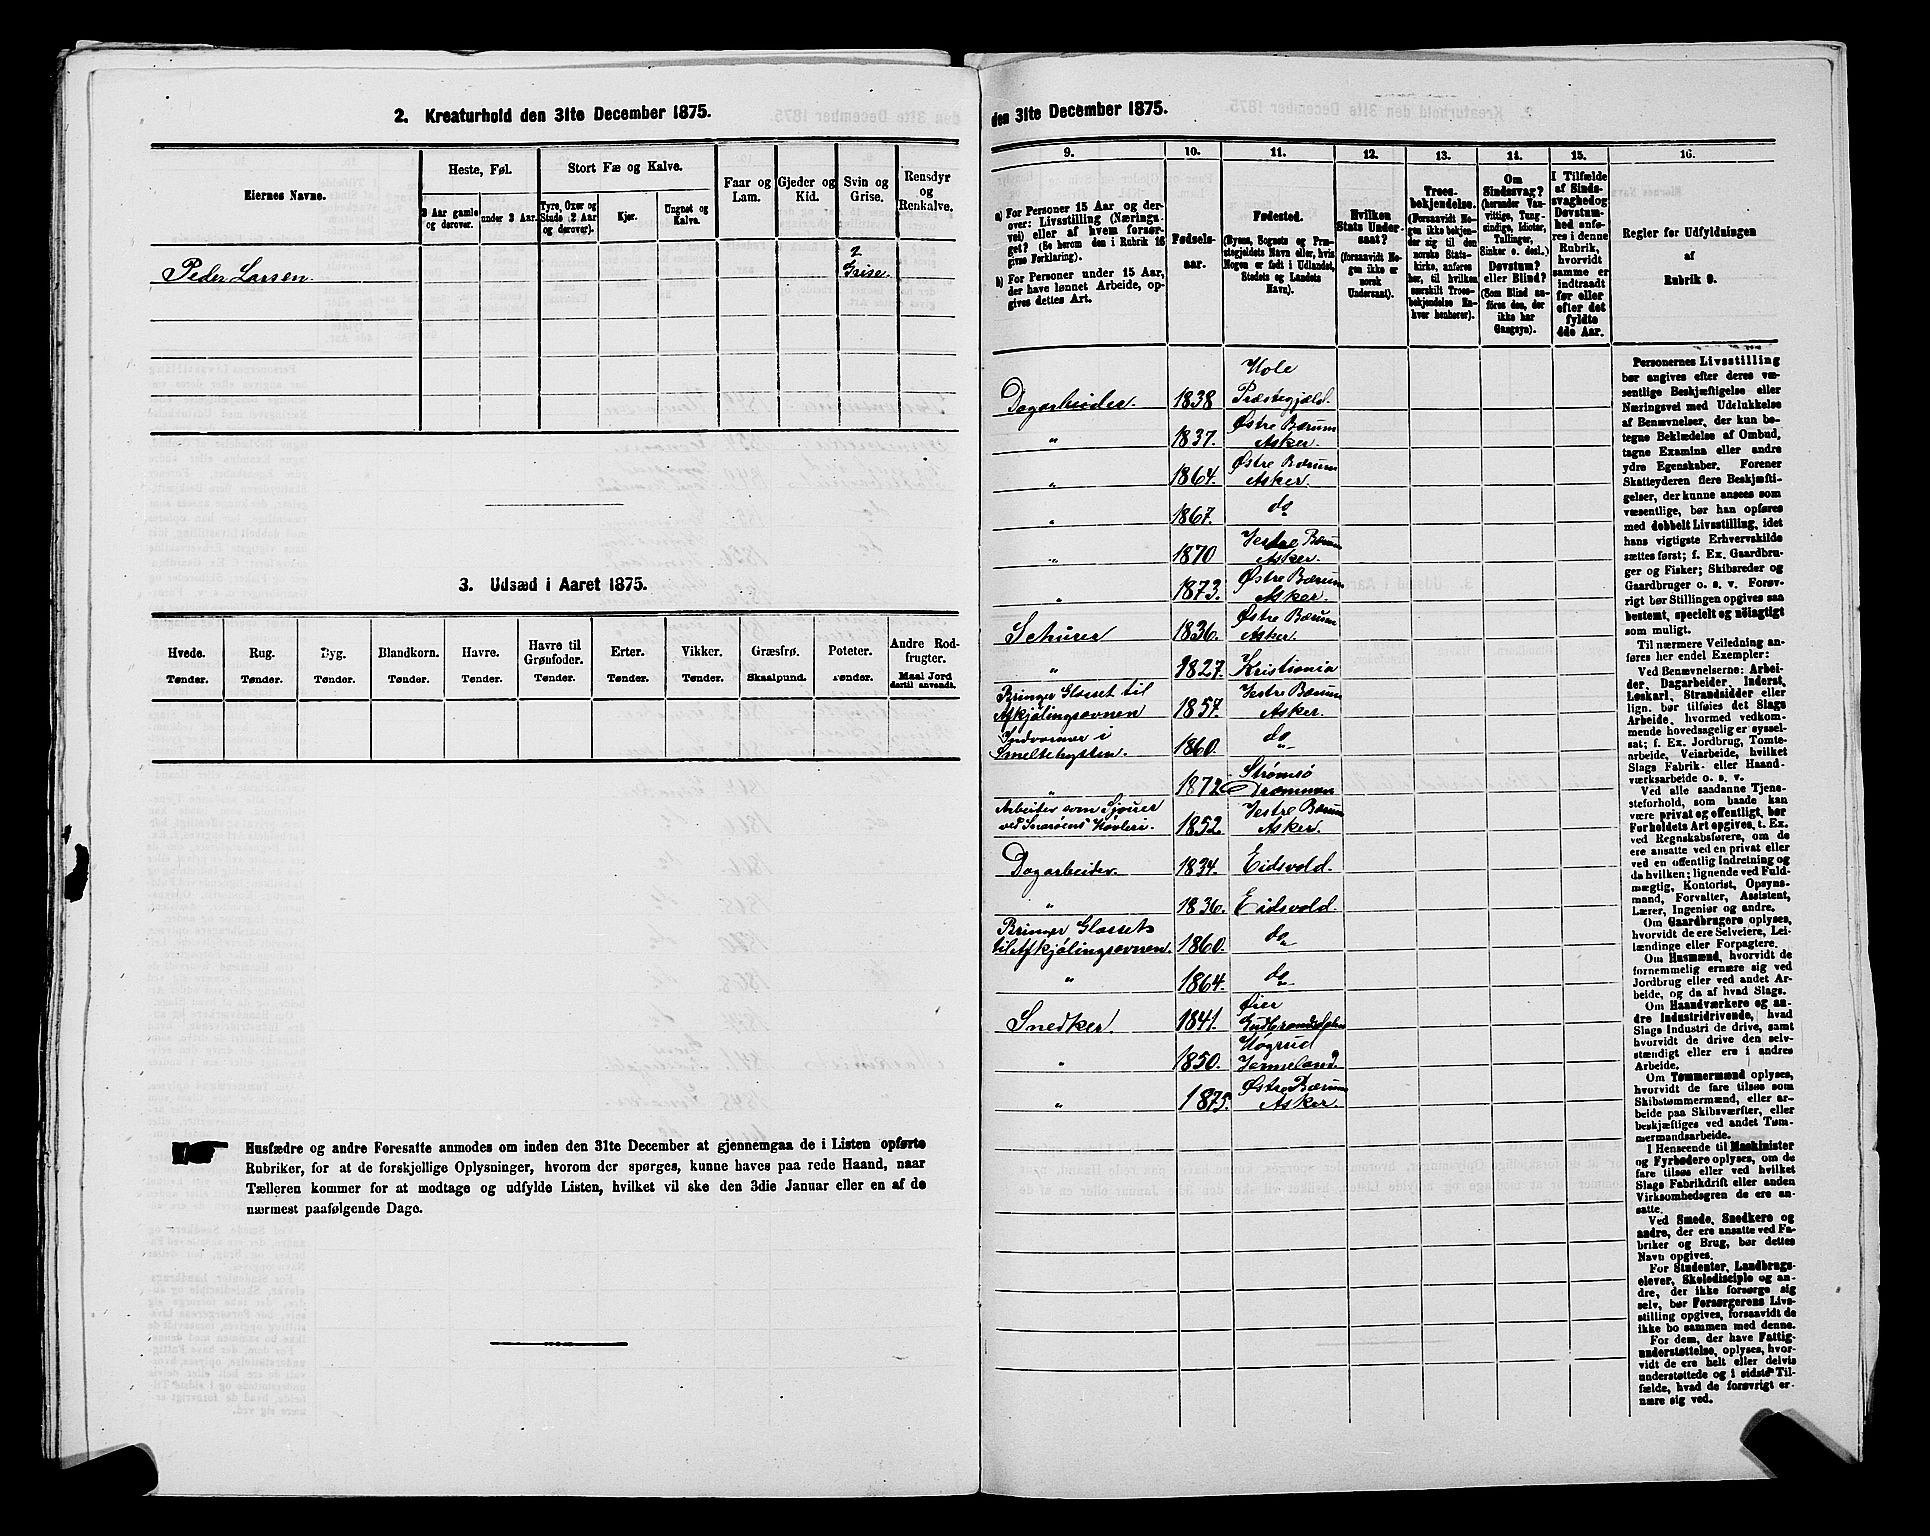 2. Kreaturhold den 31te December 1875.
Eiernes Navne.
Heste, Føl.
Stort Fæ og Kalve.
Faar og
Lam.
Gjeder og
Kid.
Svin og
Grise.
Rensdyr
og
Renkalve.
3 Aar gamle
og derover.
under 3 Aar.
Tyre, Oxer og
Stude 2 Aar
og derover).
Kjør.
Ungnøt og
Kalve.
Peder Larsen.
2
Grise.
3. Udsæd i Aaret 1875.
Hvede.
Rug.
Byg.
Blandkorn.
Havre.
Havre til
Grønfoder.
Erter.
Vikker.
Græsfrø.
Poteter.
Andre Rod-
frugter.
Tønder.
Tønder.
Tønder.
Tønder.
Tønder.
Tønder.
Tønder.
Tønder.
Skaalpund.
Tønder.
Maal Jord
dertil anvendt.
Husfædre og andre Foresatte anmodes om inden den 31te December at gjennemgaa de i Listen opførte
Rubriker, for at de forskjellige Oplysninger, hvorom der spørges, kunne haves paa rede Haand, naar
Tælleren kommer for at modtage og udfylde Listen, hvilket vil ske den 3die Januar eller en af de
nærmest paafølgende Dage.
den 31te December 1875.
9.
10.
11.
12.
13.
14.
15.
16.
a) For Personer 15 Aar og der-
over: Livsstilling (Nærings-
vei) eller af hvem forsør-
get? (Se herom den i Rubrik 16
givne Forklaring).
b) For Personer under 15 Aar,
der have lønnet Arbeide, op-
gives dettes Art.
Fødsels-
aar.
Fødested.
(Byens, Sognets og Præ-
stegjeldets Navn eller, hvis
Nogen er født i Udlandet,
Stedets og Landets
Navn).
Hvilken
Stats Under-
saat?
(forsaavidt No-
gen ikke er
norsk
Undersaat).
Troes-
bekjendelse.
(Forsaavidt No-
gen ikke bekjen-
der sig til den
norske Stats-
kirke, anføres
her, til hvilken
særskilt Troes-
bekjendelse En-
hver henhører).
Om
Sindssvag?
(herunder Van-
vittige, Tung-
sindige, Idioter,
Tullinger,
Sinker o. desl.)
Døvstum?
eller Blind?
(Som Blind an-
føres den, der
ikke har
Gangsyn).
I Tilfælde
af Sinds-
svaghed og
Døvstum-
hed anfø-
res i denne
Rubrik,
hvorvidt
samme er
indtraadt
før eller
efter det
fyldte
4de Aar.
Regler for Udfyldningen
af
Rubrik 9.
Hole
Dagarbeider. 1838 Præstegjæld.
" 1837. Østre Bærum
Asker.
" 1864. Østre Bærum
Asker.
" 1867. do
" 1870 Vestre Bærum
Asker.
" 1873. Østre Bærum
Asker.
Schurer 1836. Østre Bærum
Asker.
" 1827. Kristiania
Bringer Glasset til
Afkjølingsovnen 1857. Vestre Bærum
Asker.
Indbærer i
Smeltehytten. 1860. do
" 1872 Strømsø
Drammen
Arbeider som Sjouer
ved Snarøens Høvleri. 1852. Vestre Bærum
Asker.
Dagarbeider. 1834. Eidsvold.
" 1836. Eidsvold.
Bringer Glasset
til Afkjølingsovnen. 1860. do
" 1864. do
Snedker. 1841. Øier
Gudbrandsdalen
" 1850. Høgrud
Vermeland
" 1875. Østre Bærum
Asker.
Personernes Livsstilling
bør angives efter deres væ-
sentlige Beskjæftigelse eller
Næringsvei med Udelukkelse
af Benævnelser, der kun be-
tegne Beklædelse af Ombud,
tagne Examina eller andre
ydre Egenskaber. Forener
Skatteyderen flere Beskjæfti-
gelser, der kunne ansees som
væsentlige, bør han opføres
med dobbelt Livsstilling, idet
hans vigtigste Erhvervskilde
sættes først; f. Ex. Gaardbru-
ger og Fisker; Skibsreder og
Gaardbruger o. s. v. Forøv-
rigt bør Stillingen opgives saa
bestemt, specielt og nøiagtigt
som muligt.
Til nærmere Veiledning an-
føres her endel Exempler:
Ved Benævnelserne: Arbei-
der, Dagarbeider, Inderst,
Løskarl, Strandsidder eller
lign. bør tilføies det Slags
Arbeide, hvormed vedkom-
mende hovedsagelig er syssel-
sat; f. Ex. Jordbrug, Tomte-
arbeide, Veiarbeide, hvilket
Slags Fabrik- eller Haand-
værksarbeide o. s. v.
Ved alle saadanne Tjene-
steforhold, som baade kan
være privat og offentligt, bør
Forholdets Art opgives, t. Ex.
ved Regnskabsførere, om de
ere ansatte ved en privat eller
ved en offentlig Indretning og
da hvilken; lignende ved Fuld-
mægtig, Kontorist, Opsyns-
mand, Forvalter, Assistent,
Lærer, Ingeniør og andre.
Om Gaardbrugere oplyses,
hvorvidt de ere Selveiere, Lei-
lændinge eller Forpagtere.
Om Husmænd, hvorvidt de
fornemmelig ernære sig ved
Jordbrug eller ved andet Ar-
beide, og da af hvad Slags.
Om Haandværkere og an-
dre Industridrivende, hvad
Slags Industri de drive, samt
hvorvidt de drive den selv-
stændigt eller ere i andres
Arbeide.
Om Tømmermænd oplyses,
hvorvidt de fare tilsøs som
Skibstømmermænd, eller ar-
beide paa Skibsværfter, eller
beskjæftiges ved andet Tøm-
mermandsarbeide.
I Henseende til Maskinister
og Fyrbødere oplyses, om de
fare tilsøs eller ved hvilket
Slags Fabrikdrift eller anden
Virksomhedsgren de ere an-
satte.
Ved Smede, Snedkere og
andre, der ere ansatte ved Fa-
briker og Brug, bør dettes
Navn opgives.
For Studenter, Landbrugs-
elever, Skoledisciple og an-
dre, der ikke forsørge sig
selv, bør Forsørgerens Livs-
stilling opgives, forsaavidt de
ikke bo sammen med denne.
For dem, der have Fattig-
understøttelse, oplyses, hvor-
vidt de ere helt eller delvis
understøttede og i sidste Til-
fælde, hvad de forøvrigt er-
nære sig ved.